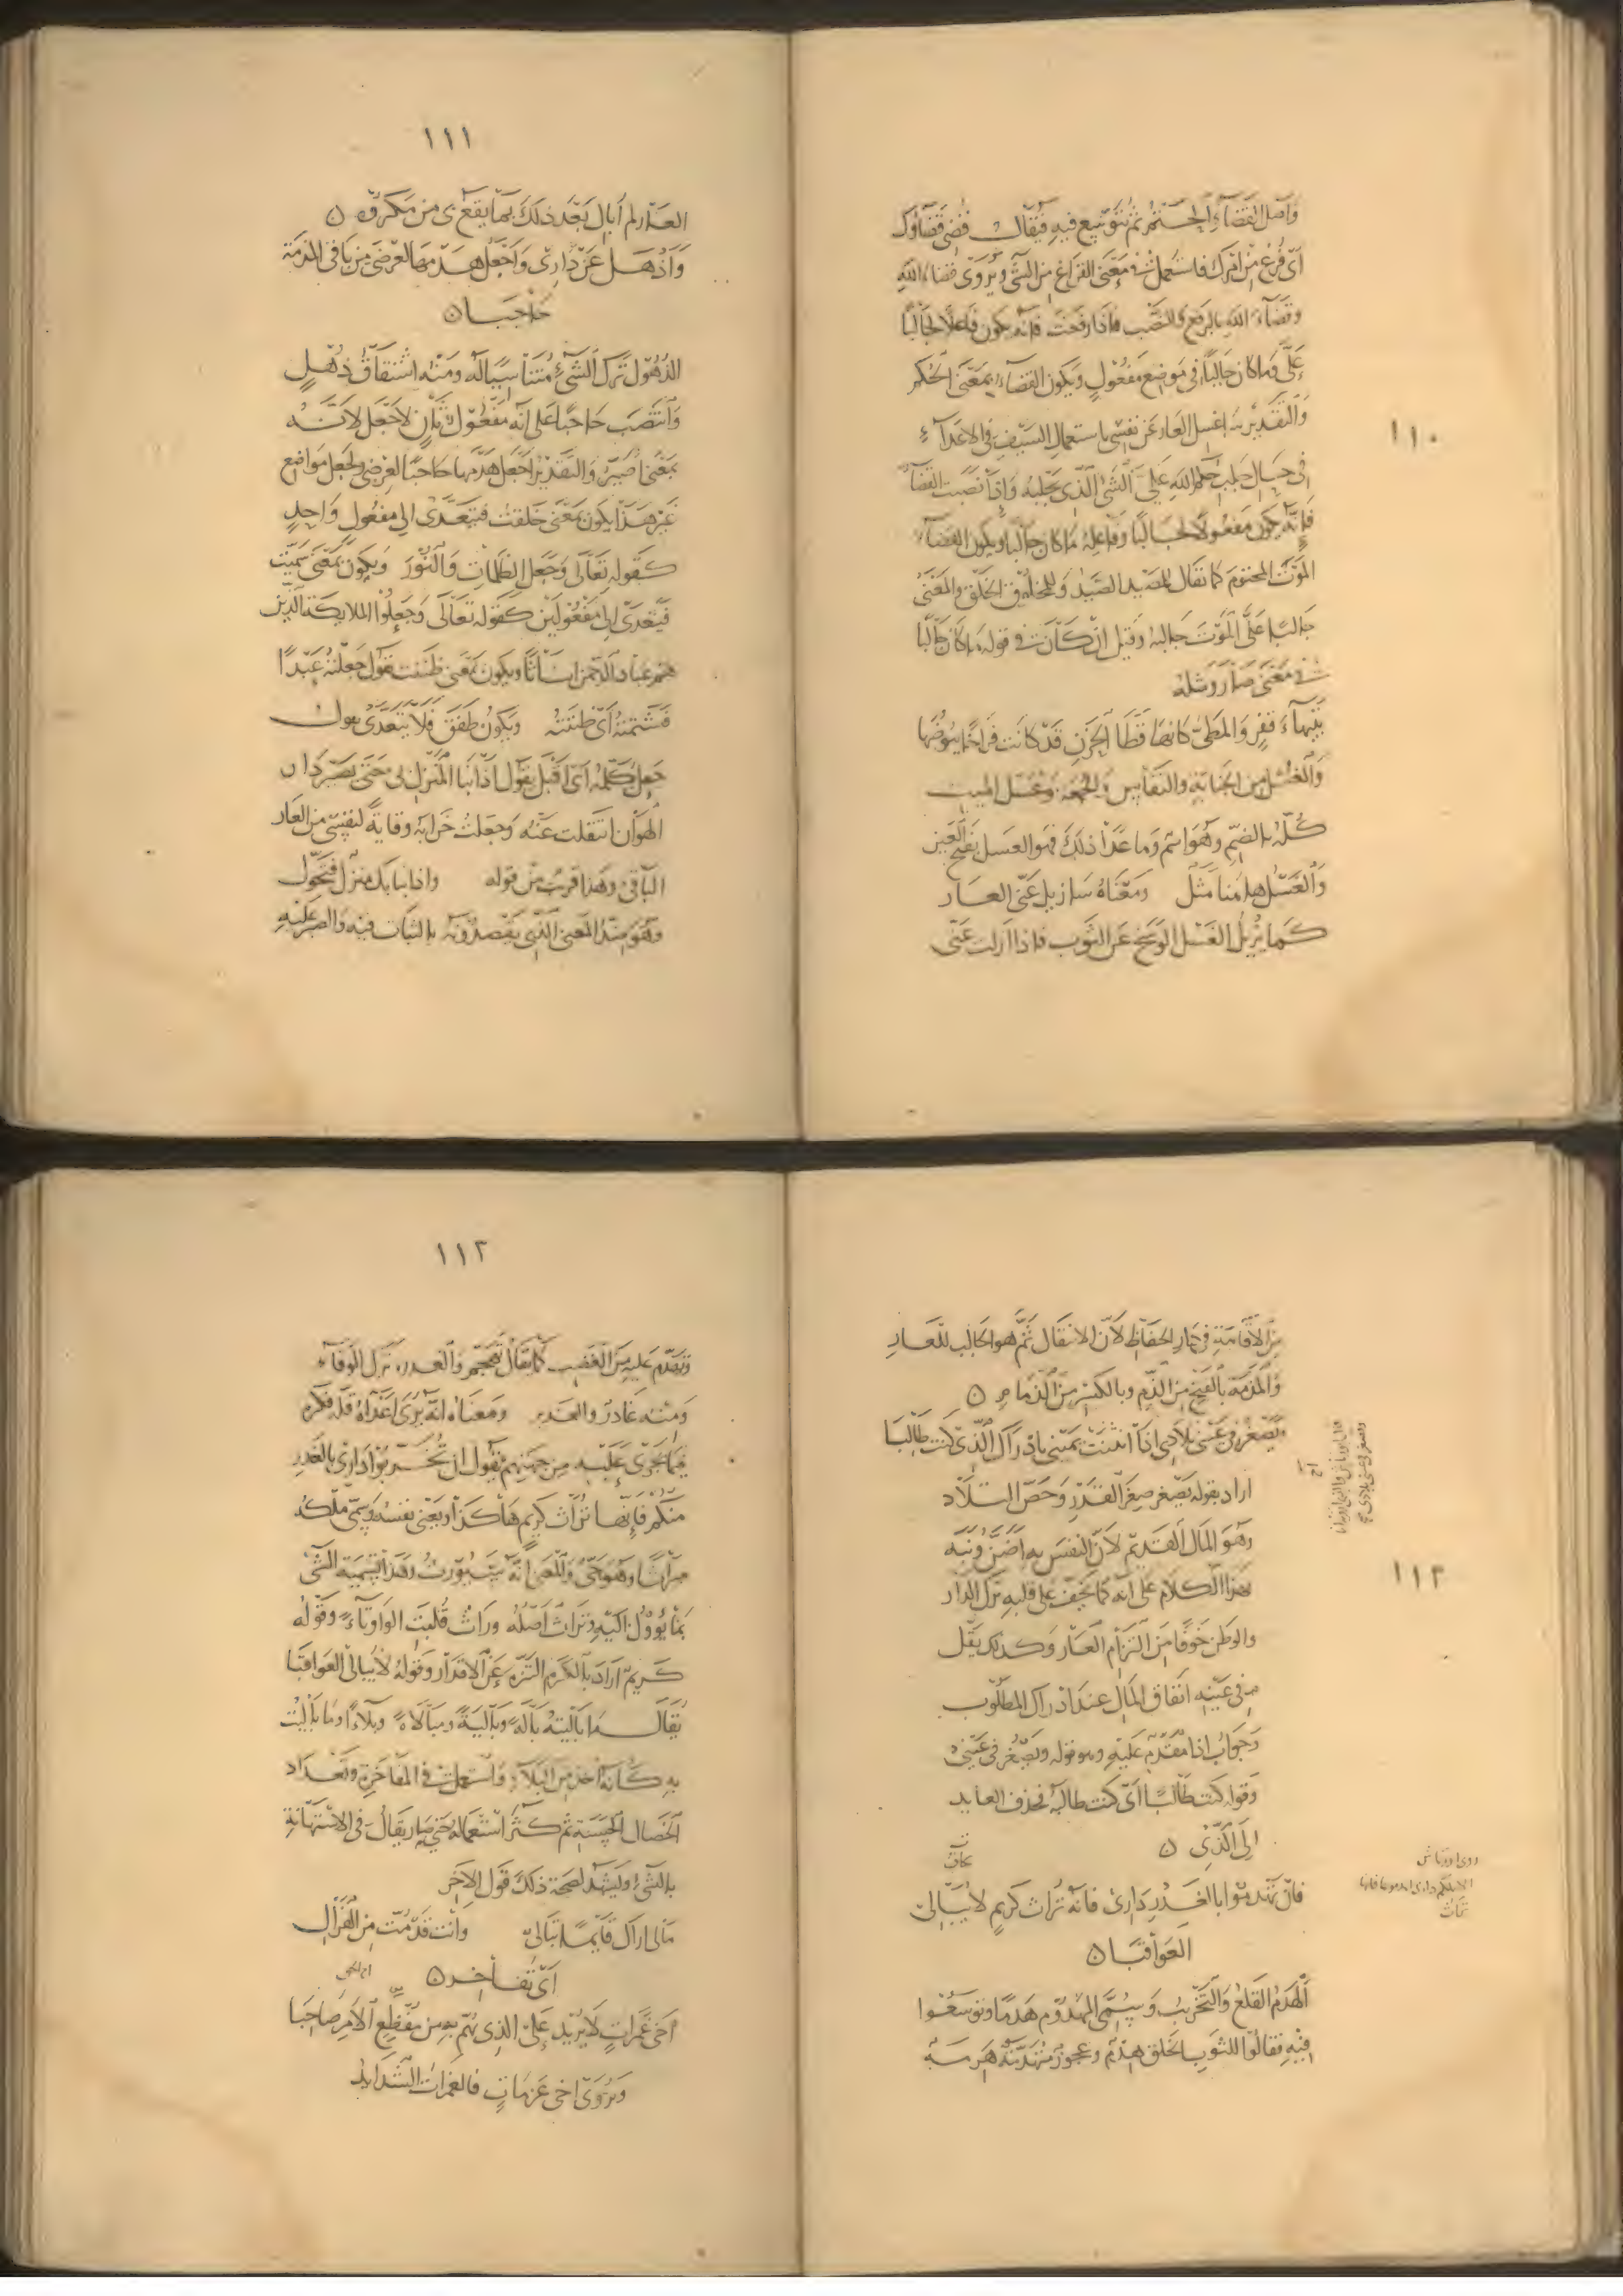 ١١٠
وَأصل القَضَآءِ الحَتمُ ثم يُتَوَسَّع فيهِ فيُقالُ قُضِىَ قَضَآؤُكَ
أىْ فُرِغَ مِن امْرِكَ فاستُعملتْ فى مَعْنَى الفَراغ مِنَ الشَّىْء ويُرْوَى قضاءُ اللهِ
وقضآءَ اللهِ بالرفع والنَّصب فاذا رفعْتَ فانّه يكون فاعلًا لجالبًا
عَلَىَّ وَمَا كانَ جالبًا فى مَوضِع مَفعُولٍ ويَكون القضاءُ بمَعْنَى الحُكم
وَالتَّقديرُ سَاغسل العارَ عَن نفسِى باستعمال السَّيفِ فى الاعدَآءِ
فى حالِ جلب حُكم اللهِ عَلىَّ الشَّىْءَ الَّذِى يَجْلِبُهُ وَإذَا نَصَبتَ القَضَآءَ
فإنَّه يكون مَفعُولًا لجالبًا وفَاعِلهُ مَا كانَ جالبًا ويكون القضآءُ
المَوْتَ المحتومَ كما يقال للمَصيد الصَّيدُ وَللمخلُوق الخَلْق والمَعْنَى
جَالبًا عَلىَّ المَوْتَ جَالبهُ وَقيل انّ كَانَ فى قولهِ مَا كانَ جَالبًا
فى مَعْنَى صَارَ ومثلهُ
بتَيهآءَ قَفرٍ وَالمَطِىُّ كانّها قَطَا الحَزنِ قَدْ كانَت فِرَاخًا بيُوضُهَا
وَالغُسْل مِن الجنابَةِ والنّفاسِ وَالجُمعَةِ وغُسْل الميت
كُلّهُ بالضّمِّ وهُوَ اسم وَما عَدَا ذلكَ فهو الغَسل بفَتح الغَين
وَالغَسْل هاهُنا مَثَلٌ ومَعْنَاهُ سَازيل عَنّى العَار
كَما يُزيلُ الغَسْل الوَسَخ عَن الثوب فاذا ازلت عَنّى
١١١
العَار لم اُبَالِ بَعْدَ ذلكَ بما يَقَعُ بى مِن مَكرُوهٍ ن
وَاَذْهَل عَنْ دَارِى وَاجْعَل هَدْمَها لعِرْضِىَ مِن بَاقى المَذمّة
حَاجبَا ن
الذّهُول تَرْكُ الشَّىْءِ مُتنَاسِيًا لَه ومَنْه اشتقاقُ ذُهْلٍ
وَانتَصَبَ حَاجبًا عَلى انّه مَفْعُولٌ ثانٍ لاجْعَل لانّه
بمَعْنَى اُصَيِّر وَالتّقديرُ اجعَلُ هَدْمَها حَاجبًا لعِرْضِى ولجَعَل مَوَاضِع
غَير هَذا يكون بمَعْنَى خَلقتُ فَيتعَدّى الى مفعُولٍ وَاحِدٍ
كقَولهِ تعَالَى وَجَعَلَ الظّلمَاتِ وَالنُّورَ وَيكونُ بمَعْنَى سَمّيت
فيتعَدّى الى مَفْعُولَين كقَوله تَعَالَى وَجَعَلُوا الملائكةَ الّذين
هُم عبَاد الرّحمَن اناثًا ويكون بمَعنى ظننت تقول جَعَلتُهُ عَبْدًا
فَشَتَمتُهُ اىْ ظننتُهُ ويَكونُ طَفقَ فَلا يتعَدّى يقول
جَعَلَ يُكلّمُه اىْ اقبلَ يقُول اذَا نَبَا المَنزِل بى حَتّى يَصيرَ دَارَ
الهَوَان انتقلت عَنْهُ وَجَعَلتُ خَرَابَهُ وقايةً لنفسِى مِنَ العَار
البَاقى وهَذا قريبٌ مِن قوله واذا نبا بكَ منزِلٌ فتَحَوَّلِ
وهُوَ ضدّ المَعْنى الّذِى يَقْصدُونَهُ بالثبَات فيهِ والصَبر عَليهِ
مِنَ الاقَامَةِ فى دَارِ الحفَاظِ لانّ الانتقال ثَمَّ هوَ الجَالب للعَارِ
وَالمَذمّة بالفَتح مِنَ الذّم وبالكَسْر مِنَ الذّمام ن
وَيَصْغُرُ فى عَيْنى تِلَادِى إذَا انثَنَتْ يَمينى بادرَاكِ الّذِى كنت طَالبَا
اراد بقَولهِ يَصْغر صِغَر القَدْرِ وَخَصَّ التلَاد
وهُوَ المَال القَدِيم لانّ النفسَ بهِ اضَنُّ ونبّه
بهذا الكلام على انّه كما يَخِفّ على قلبهِ تَرْك الدّار
والوَطن خَوفًا مِنَ التزَام العَار وَكذلكَ يقلّ
فى عَيْنِه انفاق المَال عندَ ادرَاك المطلُوب
وَجَوَابُ اذَا مُقَدَّم عَليْهِ وهو قوله ويَصْغُر فى عَيْنى
وقوله كنت طَالبًا اىْ كنت طالبَهُ فحذف العايد
إلَى الّذِى ن
١١٢
فَانْ تَهْدِمُوا بالغَدْرِ دَارِى فانّهَا تُراثُ كريمٍ لا يُبَالِى
العَوَاقبَا ن
اَلْهَدمُ القَلعُ وَالتّخْريبُ وَيُسَمَّى المَهدُوم هَدَمًا وتوسَّعُوا
فيْهِ فقالُوا للثوبِ الخَلَق هِدْمٌ وعجوزٌ مُتهدّمَة هَرِمَة
١١٢
وتهَدَّم عَليهِ مِنَ الغَضَب كما يُقَال تَهَجَّم وَالغَدرُ تَرك الوَفَآءِ
وَمنْه غَادرَ والغَدير ومَعنَاهُ انّه يُرِى اعْدَآءَهُ قلّة فِكرهِ
فيمَا يَجْرِى عَلَيْهِ مِن جِهتِهِم يقُول ان تُخَرّبُوا دَارِى بالغَدْرِ
مِنكُم فانّها تُرَاثُ كَرِيم هَاكذَا ويَعْنى نَفسَهُ وَسَمّى ملكَهُ
ميرَاثًا وهُوَ حَىٌّ وَالمَعْنَى انّهُ سَيُورثُ وهَذا تَسْمِيَة الشَّىْ
بمَا يَؤُولُ اليهِ وَتُرَاثٌ اَصْلهُ وُرَاثٌ قُلِبَت الوَاو تآءً وَقَولُه
كَرِيمٍ ارَادَ بالكَرَم التنزّه عَن الاقدَار وَقَوْلُهُ لا يُبَالى العَوَاقبَا
يُقَال مَا بَالَيْتُهُ بَالَةً وبَاليَةً ومبَالَاةً وبِلَآءً وما بَالَيْتُ
بهِ كَانّه اُخِذَ مِن البَلآءِ وَاستُعملت فى المفَاخَرةِ وتَعْدَاد
الخِصَال الحَسنَةِ ثم كَثُرَ استعمَالهُ حَتّى صَارَ يقَال فى الاستِهَانَةِ
بالشَّىْءِ ويَشْهَد لصحّة ذلكَ قَولُ الآخَرِ
مَالى ارَاكَ قَائمًا تُبَالى وَانت قَدْ مُتَّ مِنَ الهُزَالِ
أىْ تُفَاخر ن
اخى غَمَراتٍ لَا يُريْد عَلَى الّذِى يَهُمّ بهِ مِن مُفْظِعِ الاَمرِ صَاحبَا
وَيُرْوَى اخى عَزَمَاتٍ فَالغَمَرَاتُ الشَّدَايد